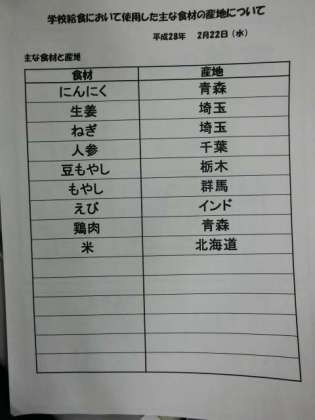 学校給食において使用した主な食材の産地について
平成28年　2月22日（水）
主な食材と産地
食材　産地
にんにく　青森
生姜　埼玉
ねぎ　埼玉
人参　千葉
豆もやし　栃木
もやし　群馬
えび　インド
鶏肉　青森
米　北海道